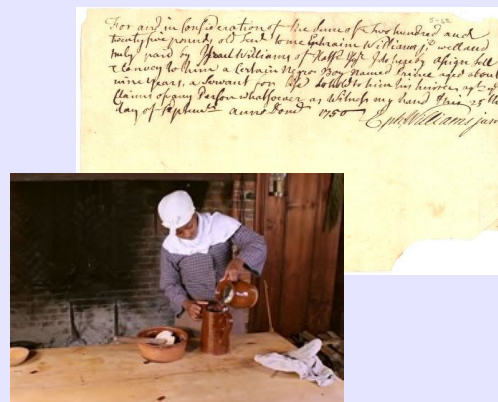 J-62
For and in Consideration of the Sum of Two hundred and
twenty five pounds old Ten.r to me Ephraim Williams j.r well and
truly paid by Israel Williams of Hatf.d Esq.r I do hereby assign sell
& Convey to him a Certain Negro Boy Named Prince aged about
nine years, a Servant for life to hold to him his heirs ag.st
Claims of any Person whatsoever as Witness my hand this 25th
day of Sept anno Dom.i 1750
Eph Williams jun